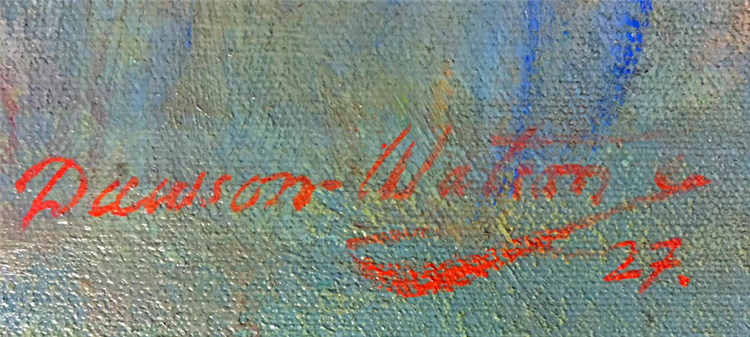 Dawson-Watson
27.